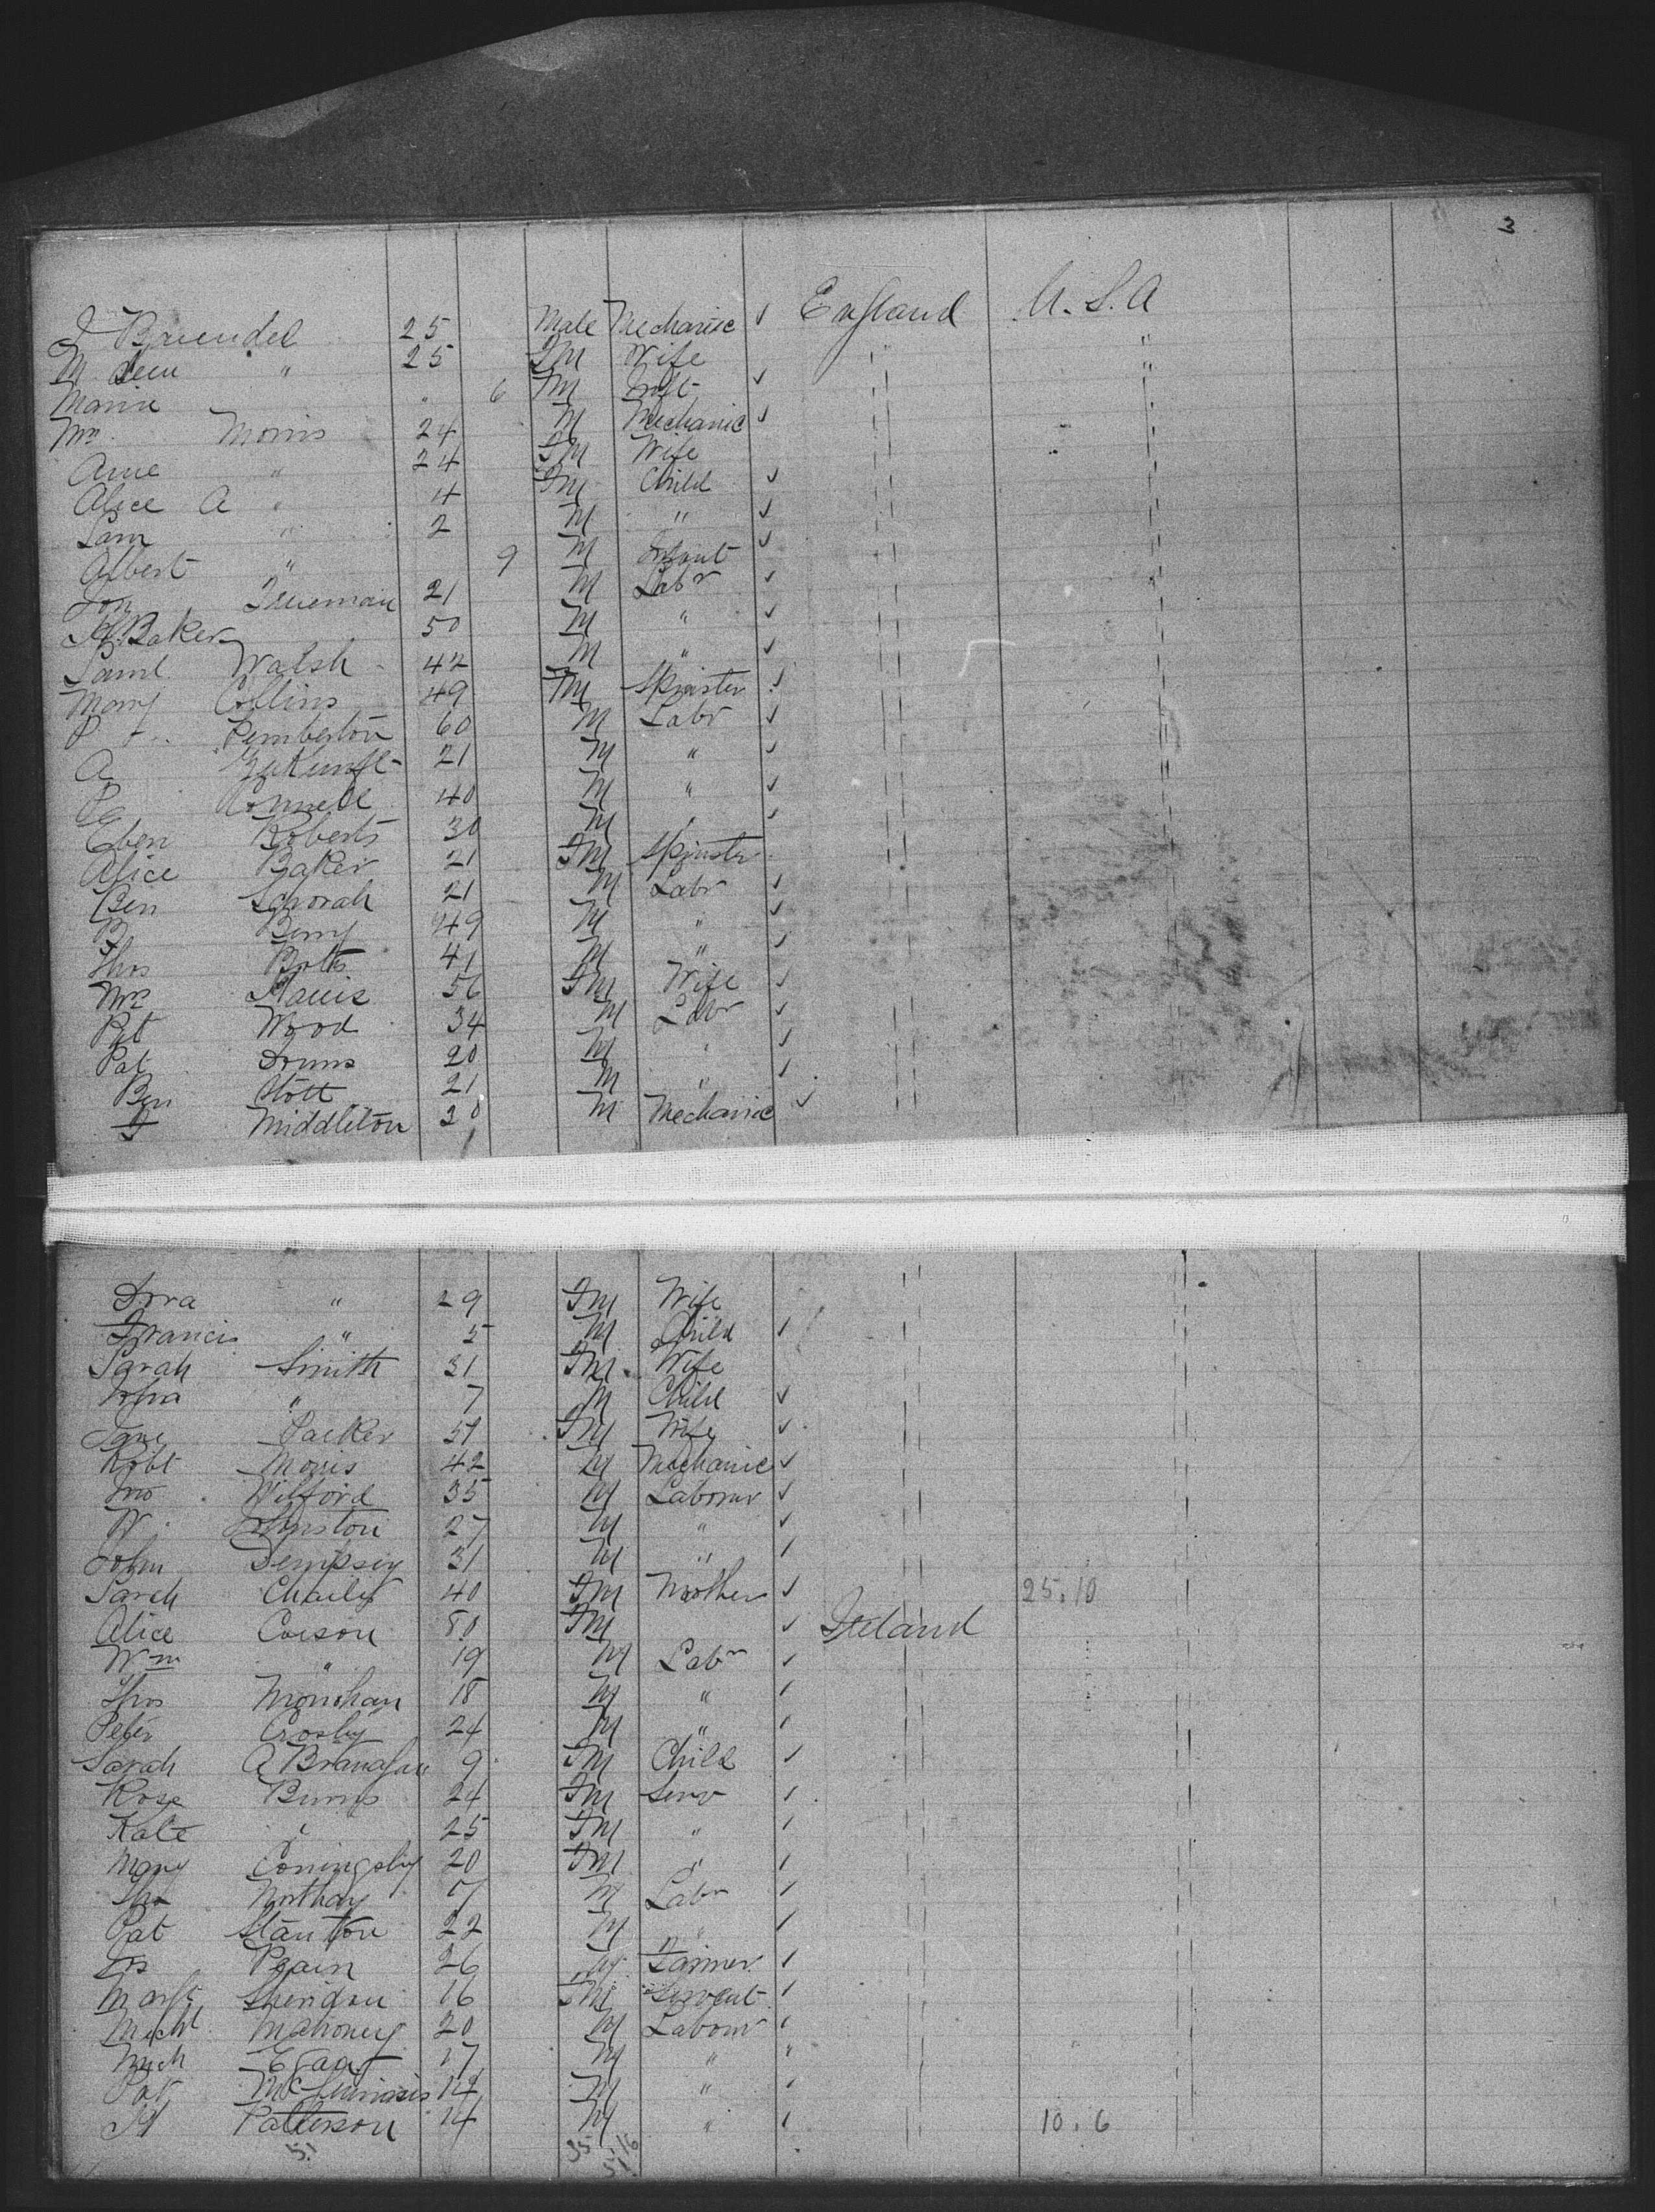 3
25 Male Mechanic ✓ England U.S.A
M " 25 Fm Wife " "
6 Fm Inft ✓ "
Wm Morris 24 M Mechanic ✓
Anne " 24 Fm Wife
Alice A " 4 Fm Child ✓
Sam " 2 M " ✓
Albert " 9 M Infant ✓
Jon 21 M Labr ✓
Baker 50 M " ✓
Saml Walsh 42 M " ✓
Mary Collins 49 Fm Spinster ✓
P Pemberton 60 M Labr ✓
A 21 M " ✓
P Connell 40 M " ✓
Eben Roberts 30 M " ✓
Alice Baker 21 Fm Spinster
Ben 21 M Labr ✓
B Berry 49 M " ✓
Thos Botts 41 M " ✓
Mrs 56 Fm Wife ✓
Pat Wood 34 M Labr ✓
Pat 20 M " ✓
Ben Stott 21 M " ✓
Middleton 30 M Mechanic ✓
Dora " 29 Fm Wife
Francis " 5 M Child ✓
Sarah Smith 31 Fm Wife
" 7 M Child ✓
Jane Parker 51 Fm Wife ✓
Robt Morris 42 M Mechanic ✓
Jno Wilford 35 M Labourer ✓
W. Johnston 27 M " ✓
John Dempsey 31 M " ✓
Sarah 40 Fm Mother ✓ 25.10
Alice Corson 50 Fm ✓ Ireland
Wm " 19 M Labr ✓
Thos Monohan 18 M " ✓
Peter Crosby 24 M " ✓
Sarah A Branagan 9 Fm Child ✓
Rose Burns 24 Fm Serv ✓
Kate " 25 Fm " ✓
Mary Coningsby 20 Fm " ✓
Tho 17 M Labr ✓
Pat Stanton 22 M " ✓
26 M Farmer ✓
Margt Sheridan 16 Fm Servant ✓
Michl Mahoney 20 M Labour ✓
Mich Egan 17 M " "
Pat 14 M " ✓
Patterson 14 M " ✓ 10.6
51 35 16
51